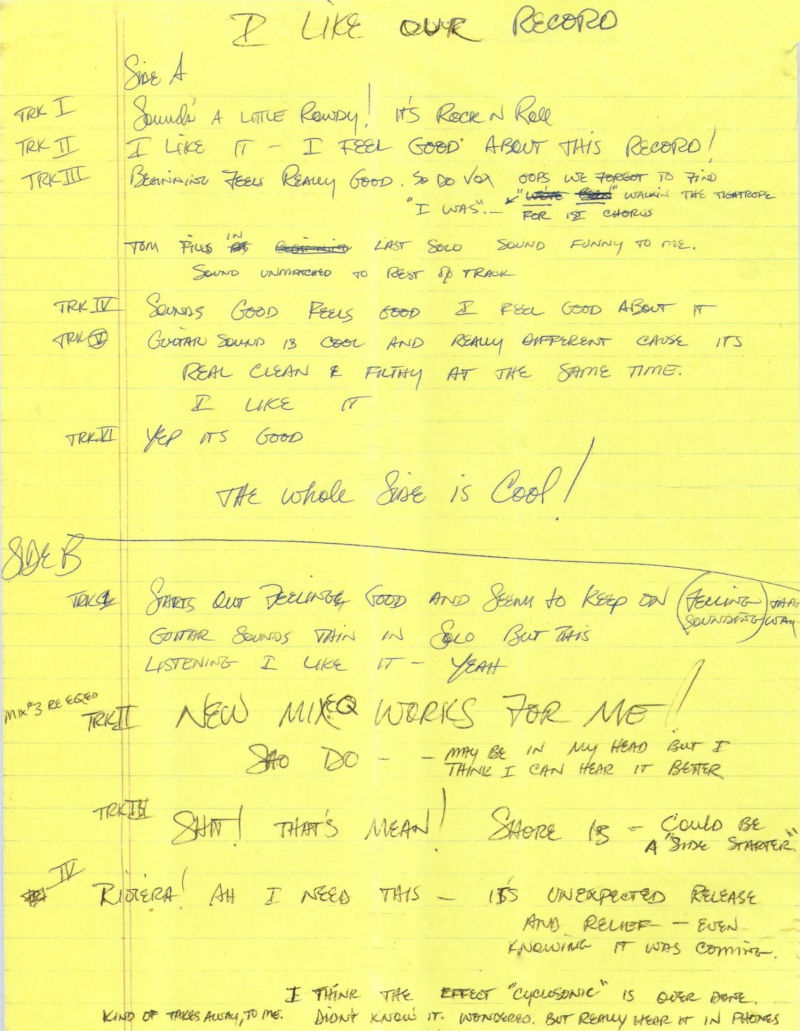 I LIKE OUR RECORD
Side A
TRK I SOUNDS A LITTLE ROWDY! IT'S ROCK N ROLL
TRK II I LIKE IT - I FEEL GOOD ABOUT THIS RECORD!
TRK III BEGINNING FEELS REALLY GOOD. SO DO VOX OOPS WE FORGOT TO FIND
"I WAS" - "WE'VE BEEN" WALKIN THE TIGHTROPE
FOR 1ST CHORUS
TOM FILLS IN LAST SOLO SOUND FUNNY TO ME.
SOUND UNMATCHED TO REST OF TRACK
TRK IV SOUNDS GOOD FEELS GOOD I FEEL GOOD ABOUT IT
TRK V GUITAR SOUND IS COOL AND REALLY DIFFERENT CAUSE ITS
REAL CLEAN & FILTHY AT THE SAME TIME.
I LIKE IT
TRK VI YEP ITS GOOD
THE WHOLE SIDE IS COOL!
SIDE B
TRK 1 STARTS OUT FEELING GOOD AND SEEMS TO KEEP ON FEELING THAT
SOUNDING WAY
GUITAR SOUNDS THIN IN SOLO BUT THIS
LISTENING I LIKE IT - YEAH
MIX #3 RE EQED
TRK II NEW MIX EQ WORKS FOR ME!
SHO DO - - MAY BE IN MY HEAD BUT I
THINK I CAN HEAR IT BETTER
TRK III SHIT! THAT'S MEAN! SHORE IS - COULD BE
A "SIDE STARTER"
IV RIVIERA! AH I NEED THIS - IT'S UNEXPECTED RELEASE
AND RELIEF - EVEN
KNOWING IT WAS COMING.
I THINK THE EFFECT "CYCLOSONIC" IS OVER DONE.
KIND OF TAKES AWAY, TO ME. DIDN'T KNOW IT. WONDERED. BUT REALLY HEAR IT IN PHONES